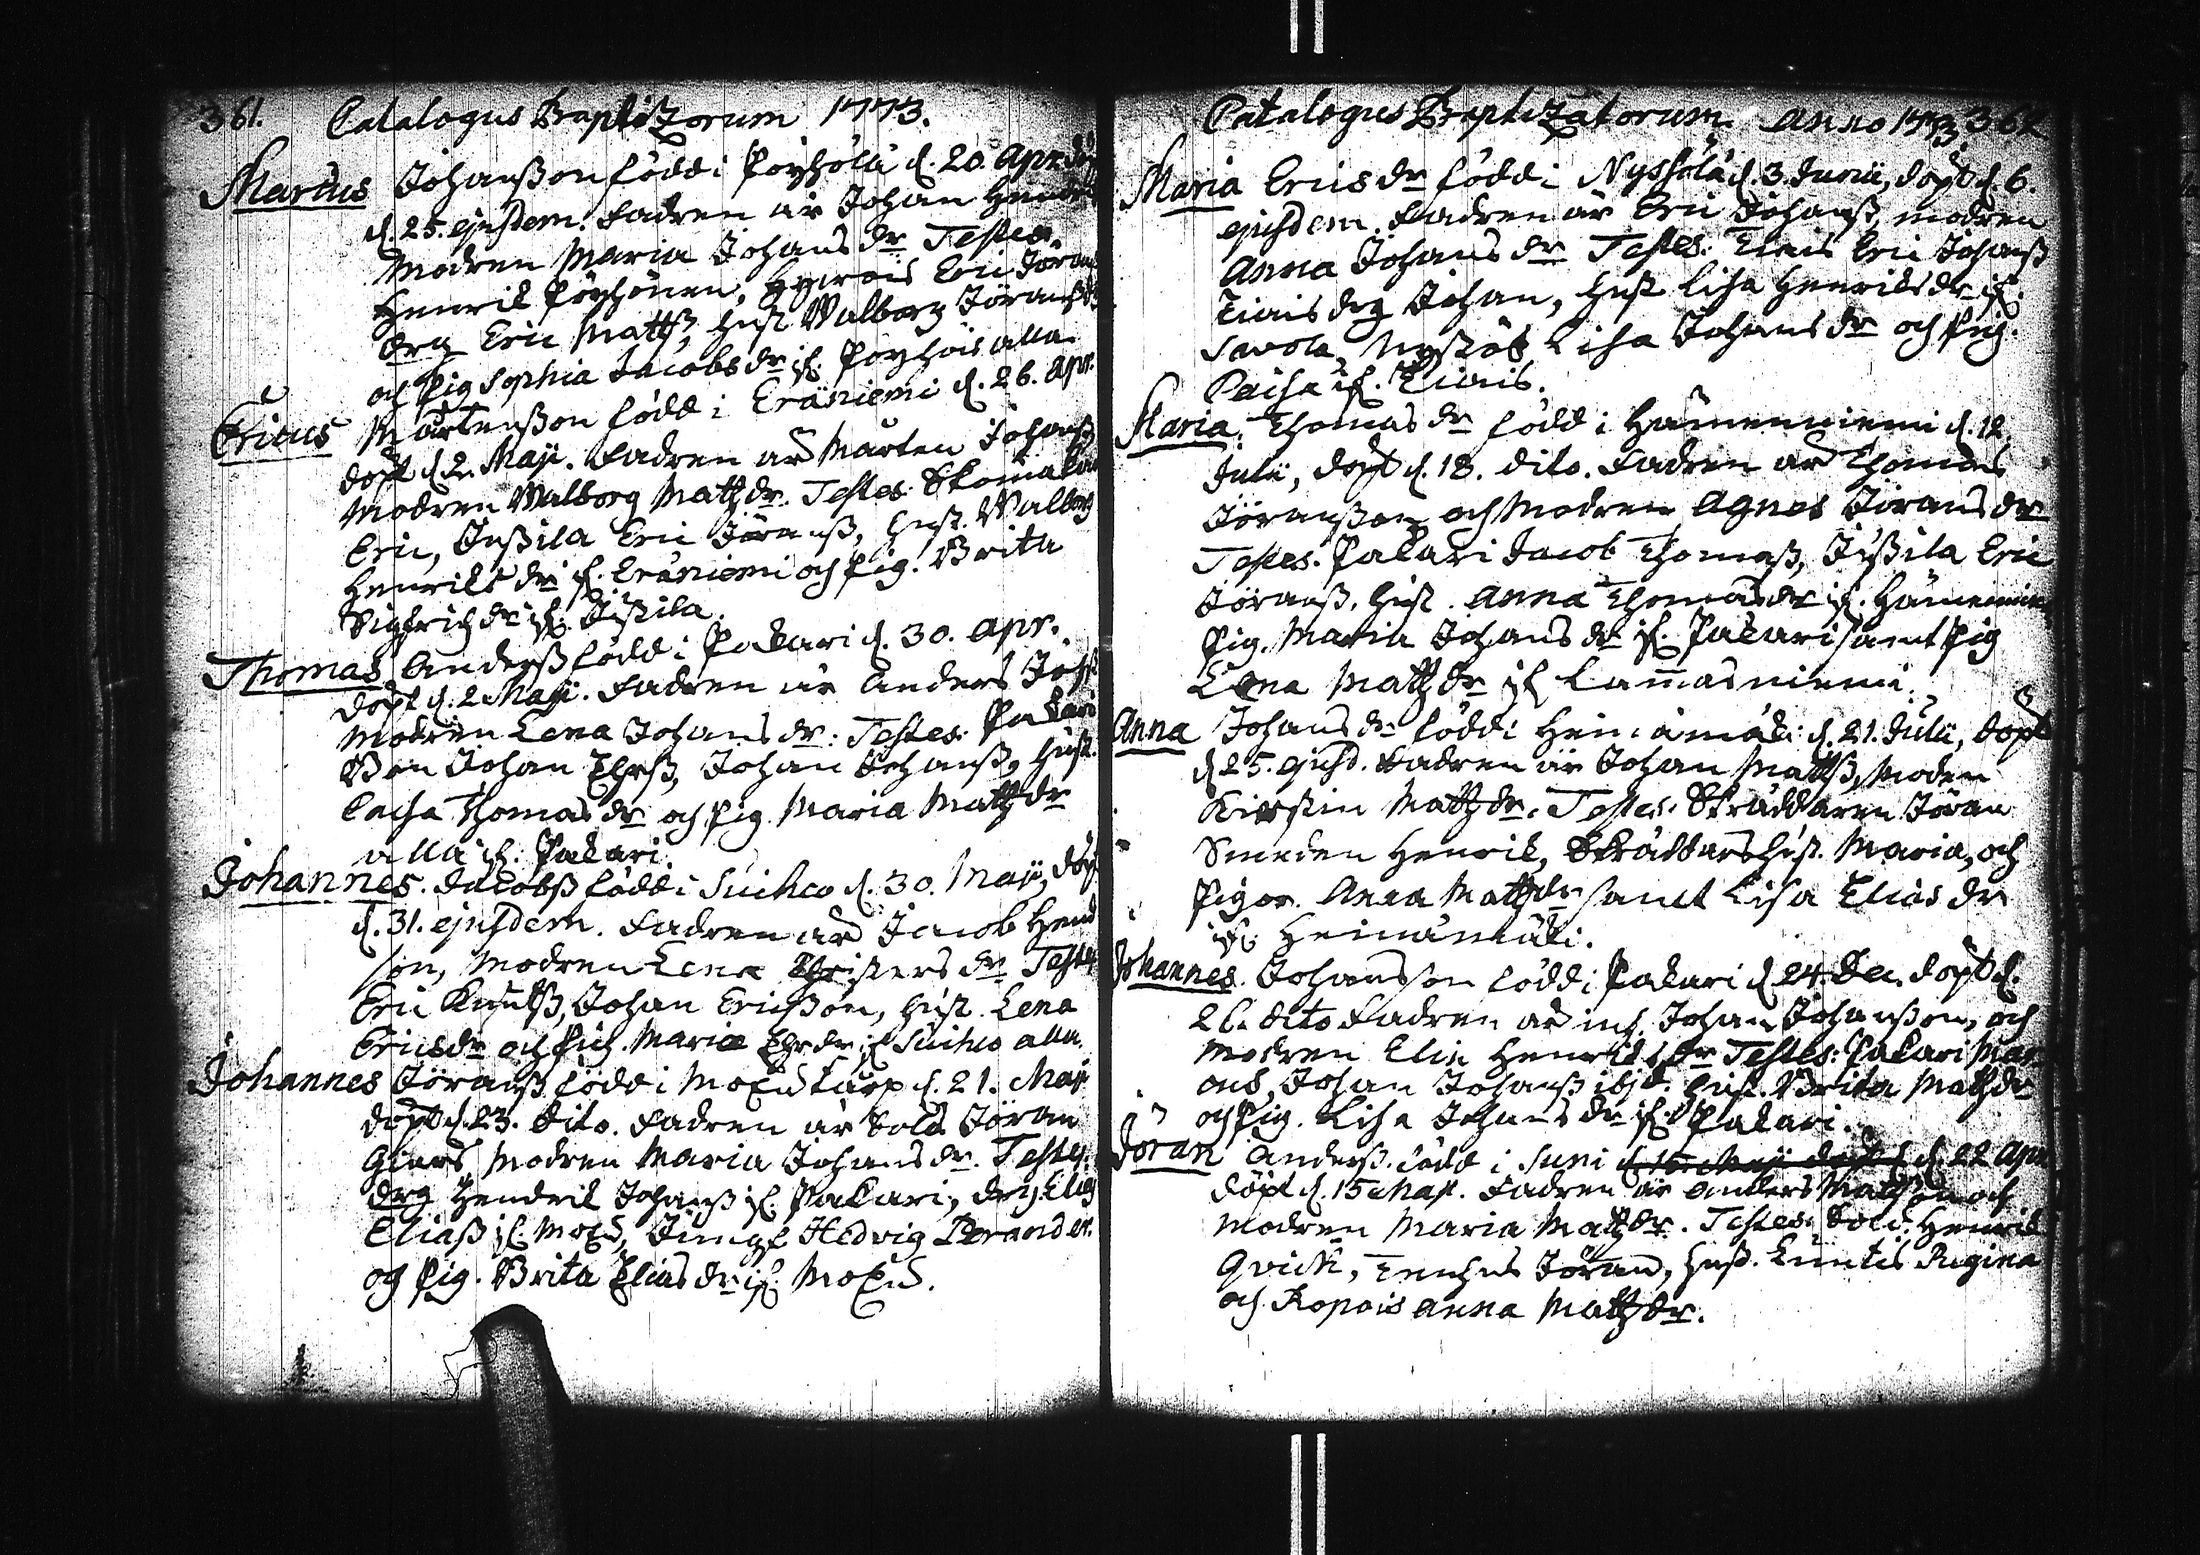 361. Catalogus Baptizorum 1773.
Marcus Johanßon född i Pöyhölä d. 20. Apr. döp
d. 25. ejusdem. Fadren är Johan Hendr
Modren Maria Johans dr Testes
Henrik Pöyhönen, Eric Jöran
drg Eric Mattß, Hust Walborg Jöransdr
och Pig Sophia Jacobs dr if. Pöyhöis alla
Ericus Mårtenßon född i Eräniemi d. 26. Apr.
döpt d. 2. Maji. Fadren är Mårten Johanß
Modren Walborg Matts dr. Testes: Skomakar
Eric, Jußila Eric Jöranß, Hust. Walborg
Henriks dr if. Eräniemi och Pig. Brita
Sigfrids dr if. Jußila.
Thomas Anderß född i Pakari d. 30. Apr.
döpt d. 2 Maji. Fadren är Anders Joh
Modren Lena Johans dr: Testes. Pakari
Bon Johan Thoß, Johan Johanß, Hust.
Caisa Thomas dr och Pig. Maria Matts dr
alla if. Pakari.
Johannes. Jacobß född i Suihco d. 30. Maji, döp
d. 31. ejusdem. Fadren är Jacob Hend
son, Modren Lena Christers dr Testes
Eric Knutß, Johan Ericßon, Hust. Lena
Ericsdr och Pig. Maria dr if Suihco alla.
Johannes Jöranß född i Moxu torp d. 21. Maji
döpt d. 23. dito. Fadren är Sold Jöran
Giers, Modren Maria Johans dr. Testes.
drg Hendrik Johanß if. Pakari, drg Elias
Eliaß if. Moxu, Jungf Hedvig Brander.
og Pig. Brita Elias dr if. Moxu.
Catalogus Baptizatorum Anno 1773 362
Maria Erics dr född i Nyssölä d. 3. Junii, döpt d. 6.
ejusdem. Fadren är Eric Johanß, modren
Anna Johans dr Testes: Eric Johanß
drg Johan, Hust Lisa Henriks dr if.
Savola, Lisa Johans dr och Pig.
Caisa if.
Maria. Thomas dr född i Hämenniemi d. 12.
Julii, döpt d. 18. dito. Fadren är Thomas
Jöranßon och Modren Agnes Jörans dr
Testes. Pakari Jacob Thomaß, Jußila Eric
Jöranß. Hust. Anna Thomas dr if. Hämenniemi
Pig. Maria Johans dr if. Pakari samt Pig
Lena Matts dr if Lam̄asniemi.
Anna Johans dr född i Heinämäki d. 21. Julii, döpt
d 25. ejusd. Fadren är Johan Mattß, Moden
Kirstin Matts dr. Testes. Skräddaren Jöran
Smeden Henrik, Skräddars Hust. Maria, och
Pigor. Anna Matts dr samt Lisa Elias dr
if. Heinämäki.
Johannes. Johansson född i Pakari d 24. Dec. döpt d.
26. dito Fadren är inh. Johan Johanßon, och
Modren Elin Henriks dr Testes: Pakari
Johan Johanß ibid. Hust. Brita Matts dr
och Pig. Lisa Johans dr if. Pakari.
Jöran Anderß. född i Suni d. 15. Maji döpt d. d 22 Apr
döpt d. 15 Maji. Fadren är Anders Matsßon och
Modren Maria Matts dr. Testes. Sold. Henrik
Qvick, Jöran, Hust. Regina
och Ropois Anna Matts dr.